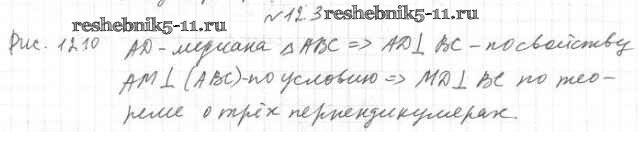 № 12.3 reshebnik5-11.ru
reshebnik5-11.ru
Рис. 12.10 AD - медиана △ABC => AD⊥ BC - по свойству
AM⊥ (ABC) - по условию => MD⊥ BC по тео-
реме о трёх перпендикулярах.
reshebnik5-11.ru